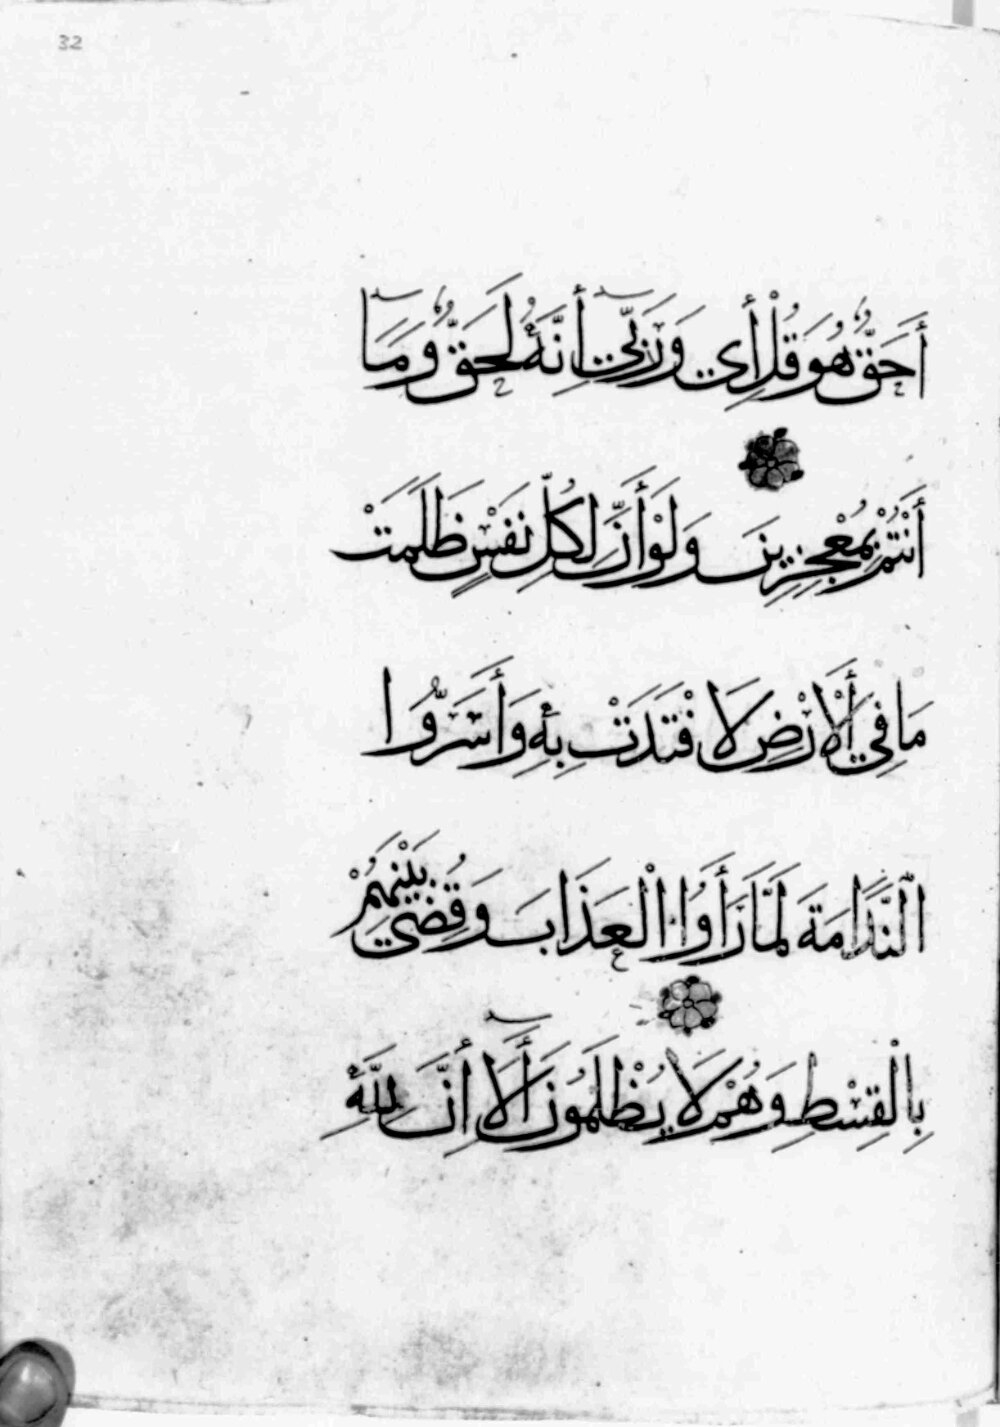 32
أَحَقٌّ هُوَ قُلْ أَي وَرَبِّي أَنَّهُ لَحَقٌّ وَمَآ
أَنْتُمْ بِمُعْجِزِينَ وَلَوْ أَنَّ لِكُلِّ نَفْسٍ ظَلَمَتْ
مَا فِي أَلْأَرْضِ لَا فْتَدَتْ بِهِ وَأَسَرُّوا
الْنَّدَامَةَ لَمَّا رَأَوُا الْعَذَابَ وَقُضِيَ بَيْنَهُمْ
بِالْقِسْطِ وَهُمْ لَا يُظْلَمُونَ أَلَآ أَنَّ لِلَّهِ